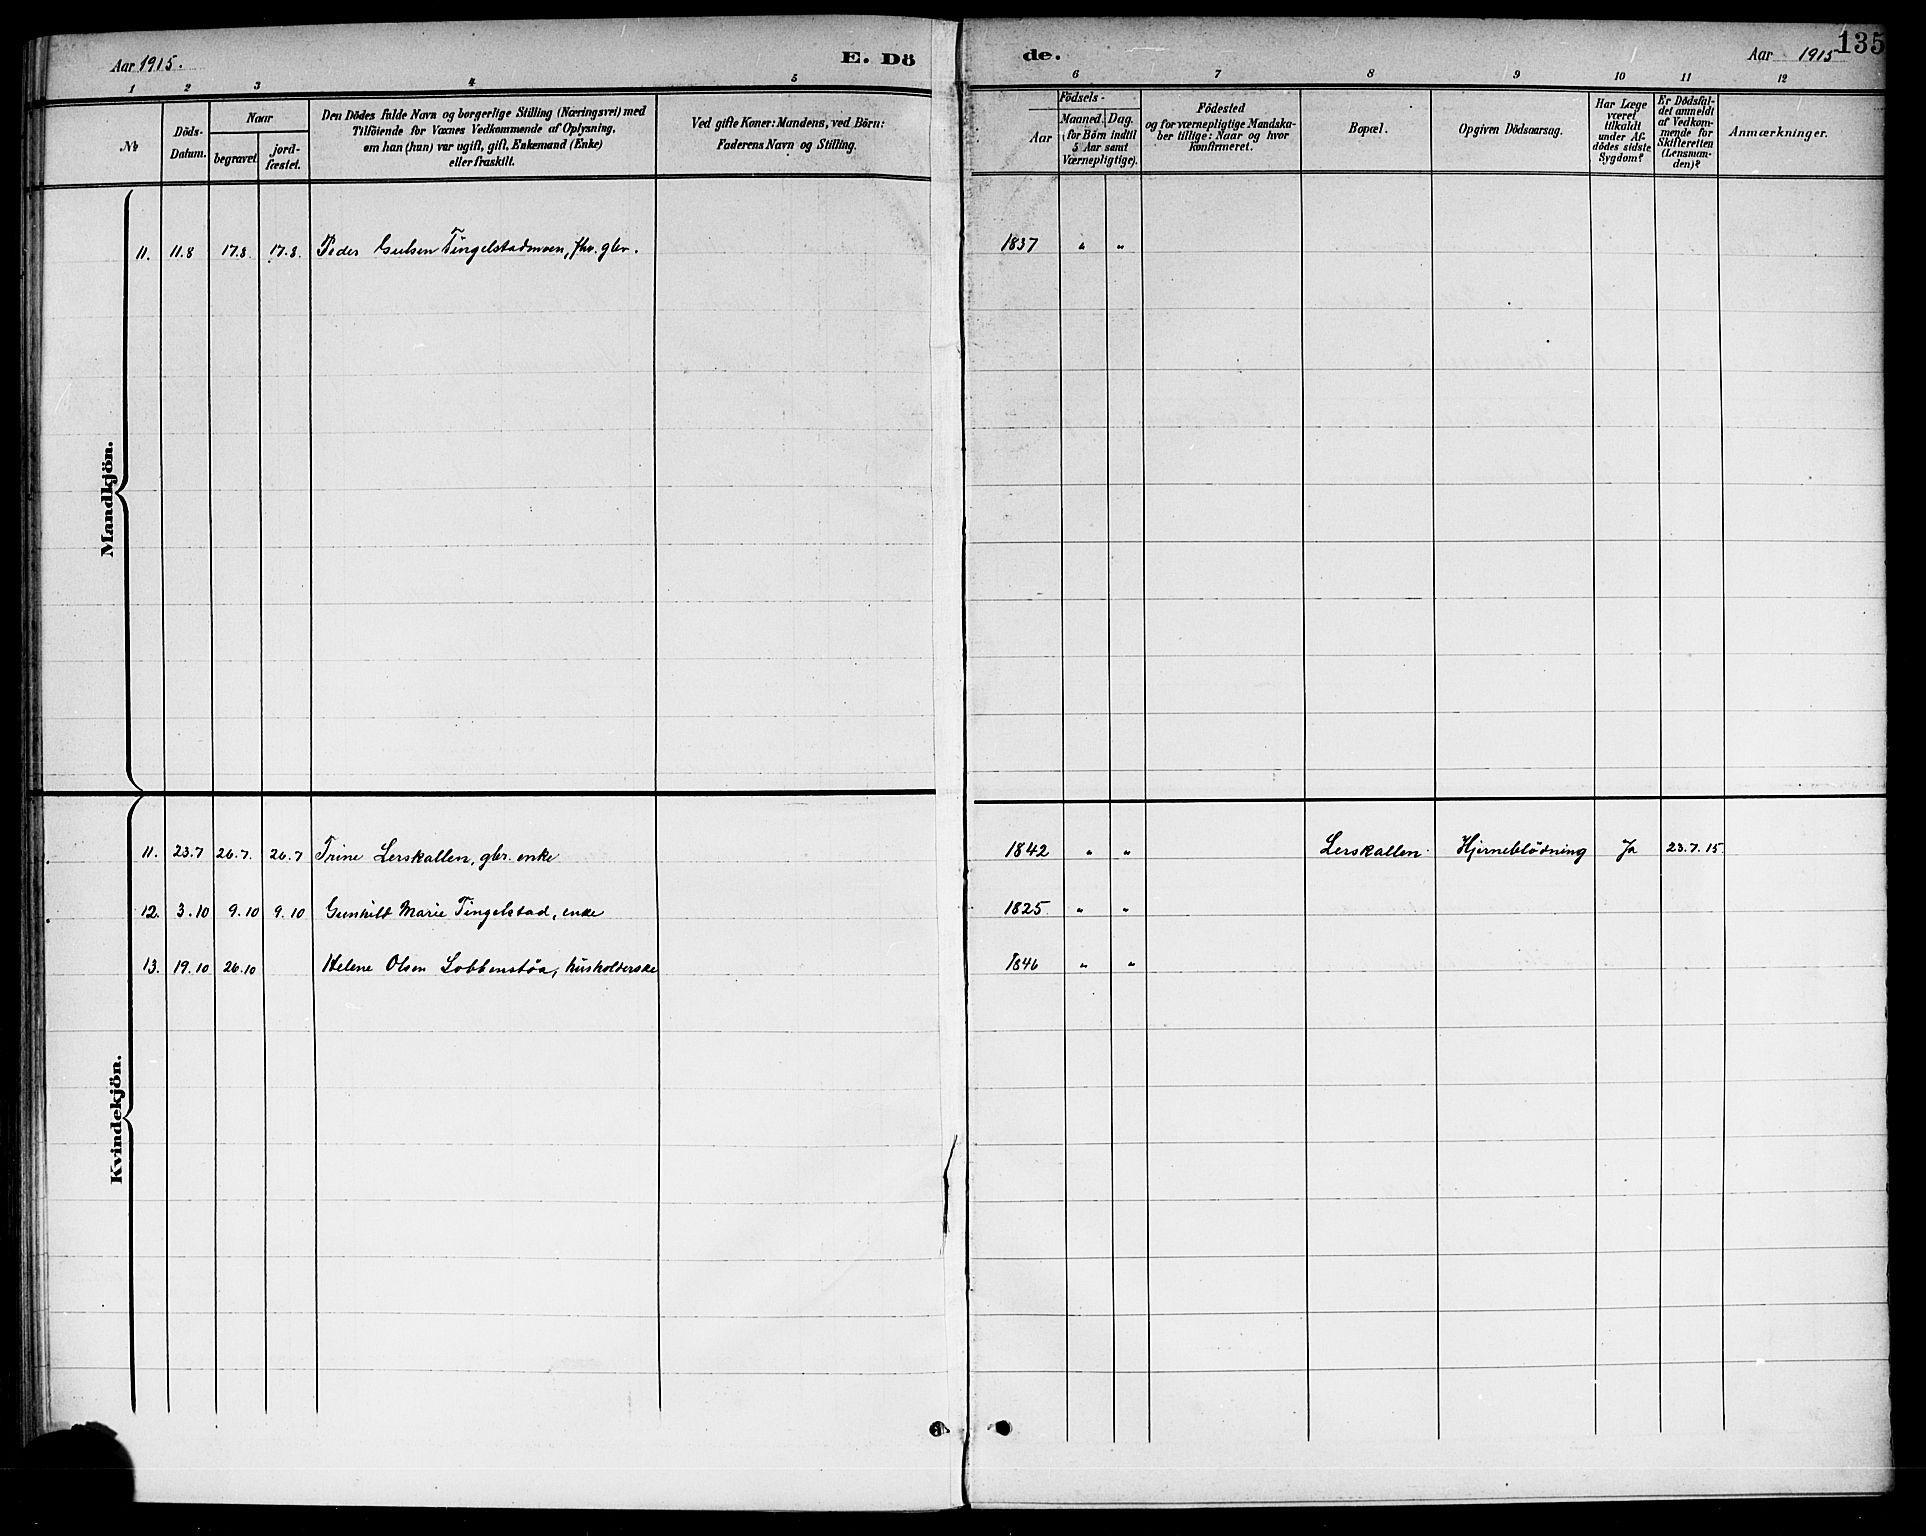 Aar 1915.
E. Dö
de.
Aar 1915
135
1 2 3 4 5 6 7 8 9 10 11 12
No
Döds-
Datum.
Naar
begravet.
jord-
fæstet.
Den Dödes fulde Navn og borgerlige Stilling (Næringsvei) med
Tilföiende for Vœnes Vedkommende af Oplysning,
om han (hun) var ugift, gift, Enkemand (Enke)
eller fraskilt.
Ved gifte Koner: Mandens, ved Börn:
Faderens Navn og Stilling.
Födsels-
Aar
Maaned. Dag.
(for Börn indtil
5 Aar samt
Værnepligtige).
Födested
og for værnepligtige Mandska-
ber tillige: Naar og hvor
konfirmeret.
Bopæl.
Opgiven Dödsaarsag.
Har Læge
været
tilkaldt
under Af-
dödes sidste
Sygdom?
Er Dödsfal-
det anmeldt
af Vedkom-
mende for
Skifteretten
(Lensman-
den)?
Anmærkninger.
Mandkjön.
11. 11.8 17.8. 17.8. Peder Gulsen Tingelstadmoen, fhv. gbr. 1837 " "
Kvindekjön.
11. 23.7 26.7. 26.7 Trine Lerskallen, gbr. enke 1842 " " Lerskallen Hjerneblödning Ja 23.7.15
12. 3.10 9.10 9.10 Gunhild Marie Tingelstad, enke 1825 " "
13. 19.10 26.10 Helene Olsen Lobbenstöa, husholderske 1846 " "